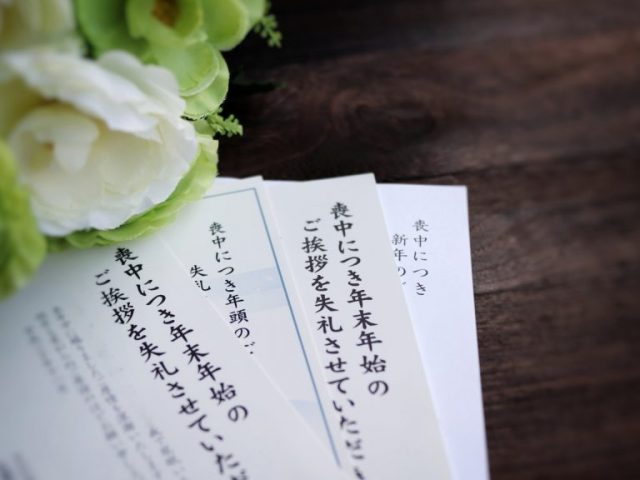 喪中につき年末年始の
ご挨拶を失礼させていただ
喪中につき年頭のご
失礼
喪中につき年末年始の
ご挨拶を失礼させていただき
喪中につき
新年のご